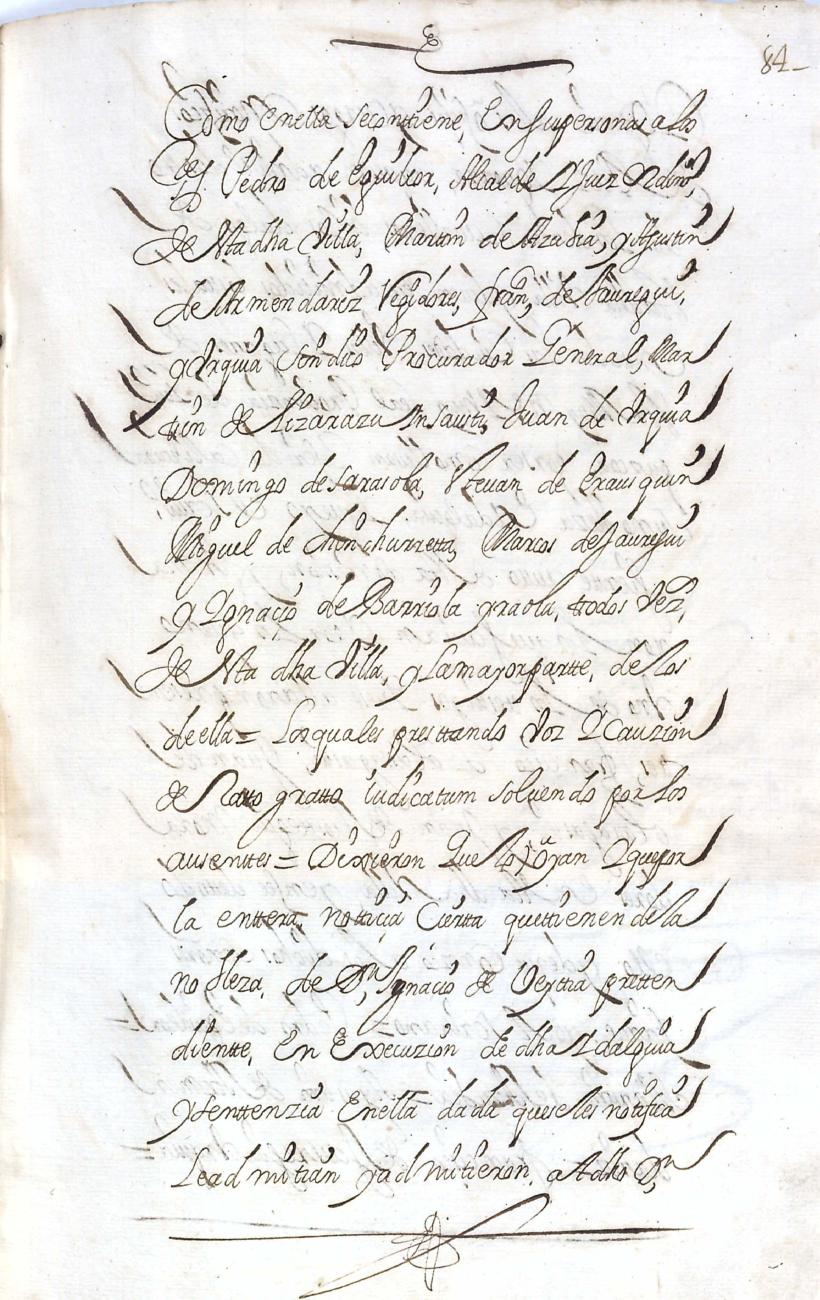 84
Como enella Seconttiene, En Supersonas a los
Pedro de Eguilior, Alcalde Y Juez
de Sta dha Villa, Marttin de Alzadia, y Agustin
de Armendariz Regidores, fran, de Jauregui,
y Vrquia Sindico Procurador General, Mar
tin de Lizarazu Insausti, Juan de Vrquia
Domingo de Sarasola, Steuan de Erausquin
Miguel de Chinchurretta, Marcos de Jauregui
y Ygnaçio de Barriola ygaraola, ttodos Vez,
de Sta dha Villa, y La mayor partte, de los
de ella = Los quales presttando Voz Y Cauzion
de Ratto gratto iudicatum soluendo por los
ausenttes = Dixieron Que lo oyan Y que por
la enttera, notticia Ciertta que ttienen de la
nobleza, de Dn Ygnacio de Veytia pretten
dientte, En Execuzion de dha Ydalguia
y Senttenzia Enella dada que se les notifica
Le admitian y admitieron, a dho Dn